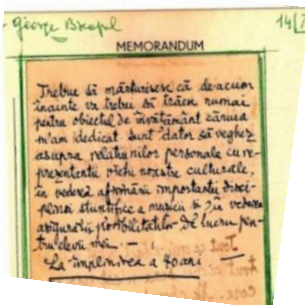 George
14
MEMORANDUM
Trebue să mărturisesc că de-acum
înainte va trebui să trăesc numai
pentru obiectul de învățământ căruia
m'am dedicat. Sunt dator să veghez
asupra relațiunilor personale cu re-
prezentanții vieții noastre culturale,
în vederea afirmării importanței disci-
plinei științifice a muzicii și în vederea
asigurării posibilităților de lucru pen-
tru elevii mei. —
La împlinirea a 40 ani. —